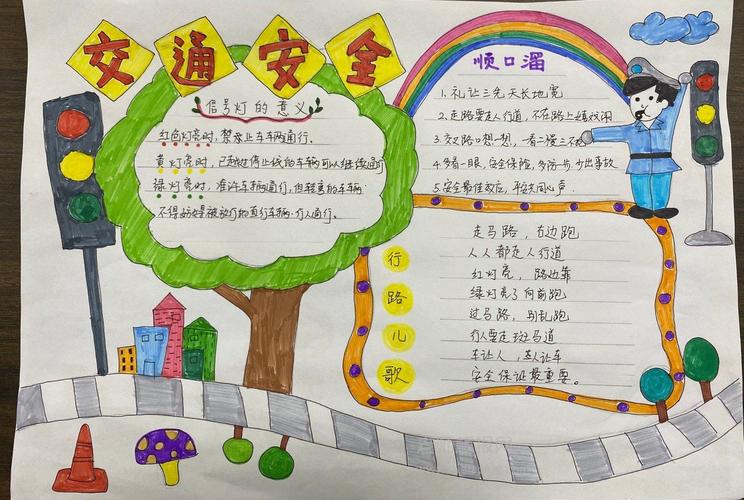 交通安全
信号灯的意义
红色灯亮时，禁止车车两通行。
黄灯亮时，已越过停止线的车辆可以继续通行
绿灯亮时，准许车辆通行，但转弯的车辆
不得妨碍被放行的直行车辆·行人通行。
顺口溜
1.礼让三先天长地宽
2.走路要走人行道，不在路上嬉戏闹
3.交叉路口想一想，一看二慢三不
4.多看一眼，安全保险，多防一步，少出事故
5.安全最佳效应，平安共同心声
行路儿歌
走马路，右边跑
人人都走人行道
红灯亮，路边靠
绿灯亮了向前跑
过马路，乱跑
行人要走斑马道
车让人，人让车
安全保证最重要。